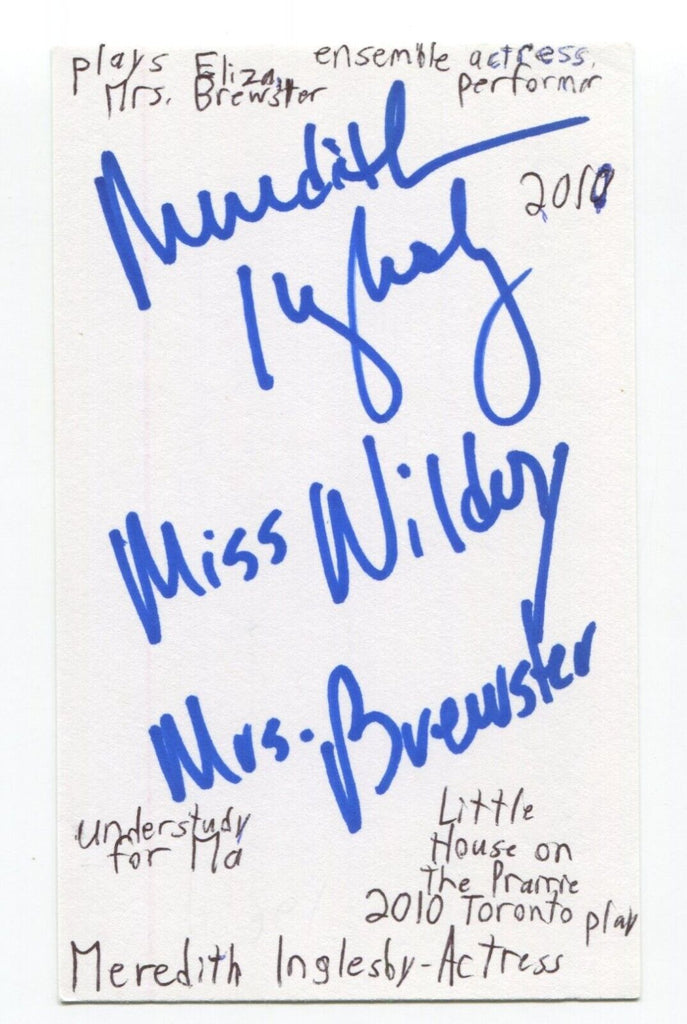 plays Eliza,
Mrs. Brewster
ensemble actress,
performer
2010
Meredith
Inglesby
Miss Wilder
Mrs. Brewster
understudy
for Ma
Little
House on
The Prairie
2010 Toronto play
Meredith Inglesby-Actress